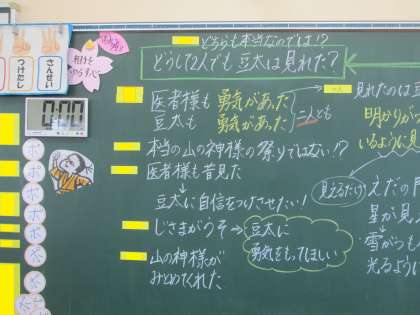 どちらも本当なのでは!?
どうして2人でも豆太は見れた?
さんせい
つけたし
相手を
0:00
医者様も 勇気があった
豆太も 勇気があった
二人とも
本当の山の神様の祭りではない!?
医者様も昔見た
↓
豆太に自信をつけさせたい!
じさまがうそ→
豆太に
勇気をもってほしい
山の神様が
みとめてくれた
見れたのは豆
明かりがつ
いるように見
見えるだけ
えだの
星が見え
↓
雪がつも
光るように
ボ
ボ
ボ
ボ
ボ